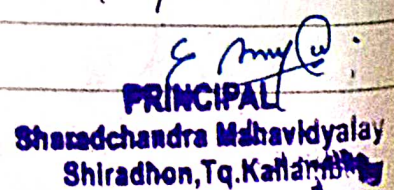 PRINCIPAL
Sharadchandra Mahavidyalay
Shiradhon, Tq.Kallamb